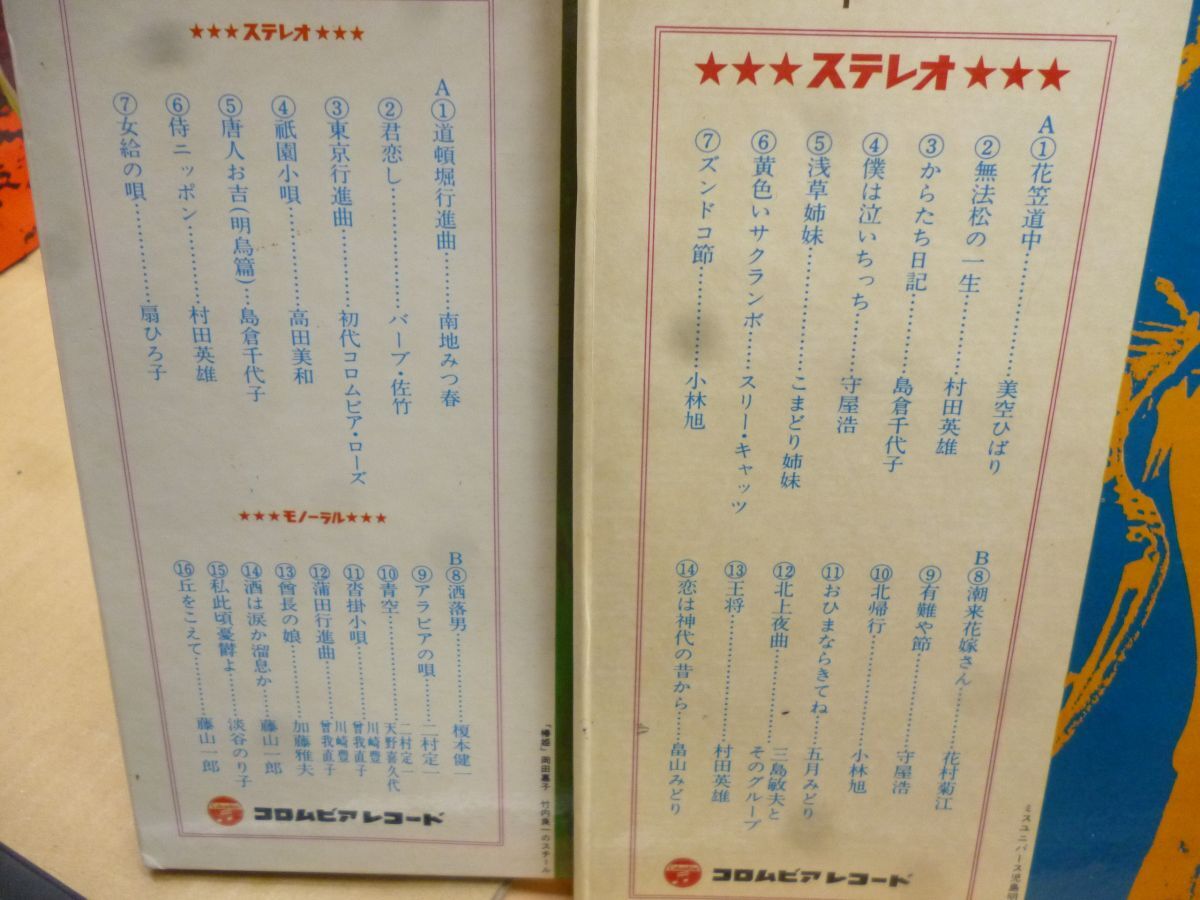 ★★★ステレオ★★★
A
①道頓堀行進曲………南地みつ春
②君恋し………バーブ・佐竹
③東京行進曲………初代コロムビア・ローズ
④祇園小唄………高田美和
⑤唐人お吉(明烏篇)…島倉千代子
⑥侍ニッポン………村田英雄
⑦女給の唄………扇ひろ子
★★★モノーラル★★★
B
⑧洒落男………榎本健一
⑨アラビアの唄………二村定一
⑩青空………二村定一
天野喜久代
⑪沓掛小唄………川崎豊
曾我直子
⑫蒲田行進曲………川崎豊
曾我直子
⑬酋長の娘………加藤雅夫
⑭酒は涙か溜息か………藤山一郎
⑮私此頃憂鬱よ………淡谷のり子
⑯丘をこえて………藤山一郎
コロムビアレコード
「椿姫」岡田嘉子 竹内良一のスチール
★★★ステレオ★★★
A
①花笠道中………美空ひばり
②無法松の一生………村田英雄
③からたち日記………島倉千代子
④僕は泣いちっち………守屋浩
⑤浅草姉妹………こまどり姉妹
⑥黄色いサクランボ……スリー・キャッツ
⑦ズンドコ節………小林旭
B
⑧潮来花嫁さん………花村菊江
⑨有難や節………守屋浩
⑩北帰行………小林旭
⑪おひまならきてね……五月みどり
⑫北上夜曲………三島敏夫と
そのグループ
⑬王将………村田英雄
⑭恋は神代の昔から……畠山みどり
コロムビアレコード
ミスユニバース児島明